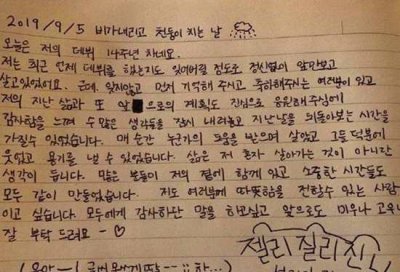 2019/9/5 비가내리고 천둥이 치는 날
오늘은 저의 데뷔 14주년 차네요.
저는 최근 언제 데뷔를 했는지도 잊어버릴 정도로 정신없이 앞만보고
살고있었어요. 근데, 잊지않고 먼저 기억해 주시고 축하해주시는 여러분이 있고
저의 지난 삶과 또 앞으로의 계획도 진심으로 응원해주심에
감사함을 느껴 수 많은 생각들을 잠시 내려놓고 지난날을 되돌아보는 시간을
가질수 있었습니다. 매 순간 누군가의 도움을 받으며 살았고 그들 덕분에
웃었고 용기를 낼 수 있었습니다. 삶은 저 혼자 살아가는 것이 아니란
생각이 듭니다. 많은 분들이 저의 곁에 함께 있고 소중한 시간들도
모두 같이 만들었습니다. 저도 여러분에 따뜻함을 전할수 있는 사람
이고 싶습니다. 모두에게 감사하단 말을 하고싶고 앞으로도 미우나 고우나
잘 부탁 드려요 - ♡
젤리젤리진